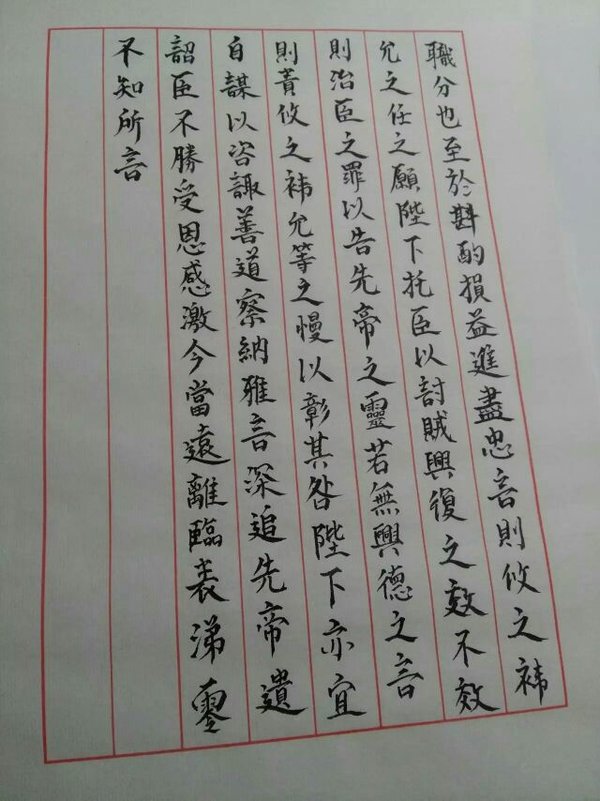 職分也至於斟酌損益進盡忠言則攸之禕
允之任之願陛下托臣以討賊興復之效不效
則治臣之罪以告先帝之靈若無興德之言
則責攸之禕允等之慢以彰其咎陛下亦宜
自謀以咨諏善道察納雅言深追先帝遺
詔臣不勝受恩感激今當遠離臨表涕零
不知所言